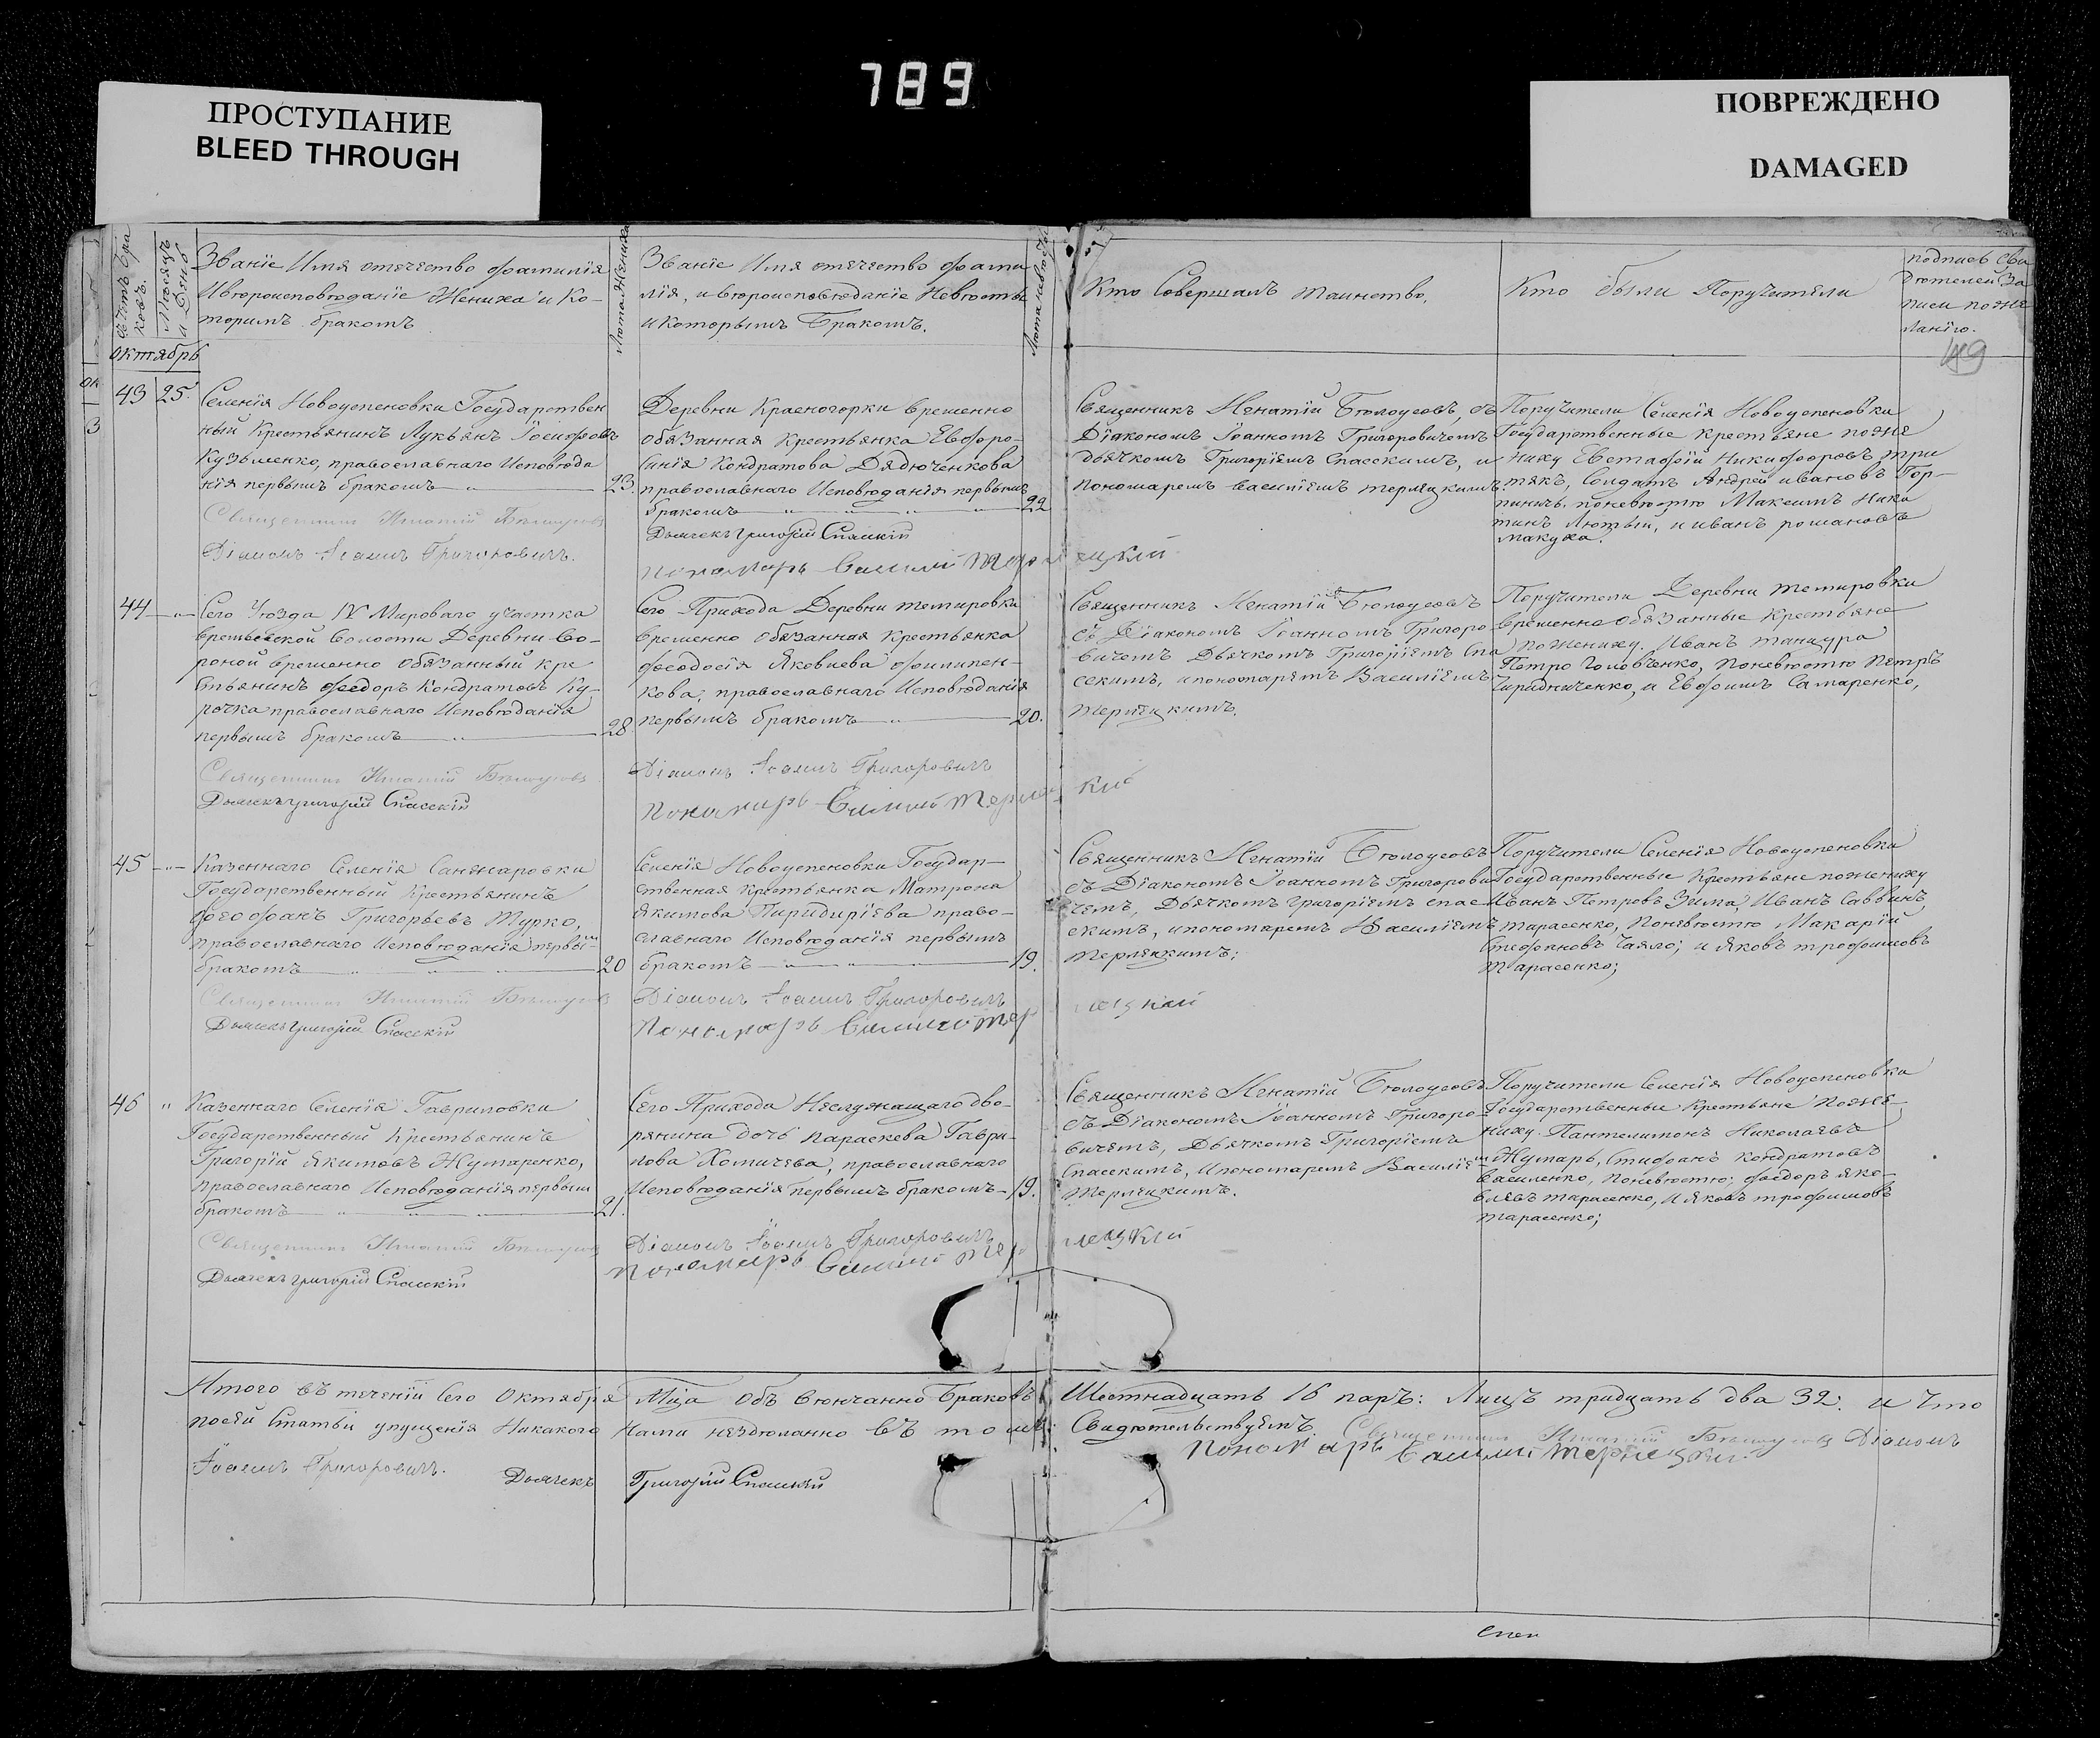 789
ПРОСТУПАНИЕ
BLEED THROUGH
ПОВРЕЖДЕНО
DAMAGED
Счетъ бра
ковъ.
Месяцъ
и День
Званіе Имя отечество фамилія
Ивероисповѣданіе Жениха и Ко-
торимъ бракомъ
Лѣта Жениха
Званіе Имя отечество фами
лія, и вѣроисповѣданіе Невѣсты
и Которымъ Бракомъ.
Лѣта невѣсты
Кто Совершалъ таинство,
Кто были Поручители
подпись Сви
дѣтелей За
писи по же
ланію.
49
октябрь
43 25.
Селенія Новоуспеновки Государствен
ный Крестьянинъ Лукьянъ Іосифовъ
Кузьменко, православнаго Исповѣда
нія первымъ бракомъ 23.
Священникъ Игнатій Бѣлоусовъ
Діаконъ Іоаннъ Григоровичъ.
Деревни Красногорки временно
обязанная Крестьянка Евфро-
синія Кондратова Дядюченкова
православнаго Исповѣданія первымъ
бракомъ 22
Дьячекъ Григорій Спасскій
Пономарь Василій Терлецкій
Священникъ Игнатій Бѣлоусовъ, съ
Діакономъ Іоанномъ Григоровичемъ
дьячкомъ Григоріемъ Спасскимъ, и
пономаремъ Василіемъ терлецкимъ.
Поручители Селенія Новоуспеновки
Государственные Крестьяне по же
ниху Евстафій Никифоровъ три
тякъ, Солдатъ Андрей ивановъ Гор-
пиничъ. поневѣстѣ Максимъ Ники
тинъ Лютый, и иванъ романовъ
макуха.
44
Сего Уѣзда IV Мироваго участка
Временно обязанный Кре
стьянинъ Феодоръ Кондратовъ Ку-
рочка православнаго Исповѣданія
первымъ бракомъ 28.
Священникъ Игнатій Бѣлоусовъ
Дьячекъ Григорій Спасскій
Сего Прихода Деревни темировки
временно обязанная Крестьянка
Феодосія Яковлева Филипен-
кова, православнаго Исповѣданія
первымъ бракомъ 20.
Діаконъ Іоаннъ Григоровичъ
Пономарь Василій Терлецкій
Священникъ Игнатій Бѣлоусовъ
съ Діакономъ Іоанномъ Григоро
вичемъ Дьячкомъ Григоріемъ Спа
сскимъ, и пономаремъ Василіемъ
терлецкимъ.
Поручители Деревни темировки
временно Обязанные Крестьяне
по жениху. Иванъ танцура
Петро Головченко, поневѣстѣ Петръ
Чиридниченко, и Евфимъ Самаренко,
45
Казеннаго Селенія Санжаровки
Государственный Крестьянинъ
Феофанъ Григорьевъ Турко,
православнаго Исповѣданія первы
бракомъ 20
Священникъ Игнатій Бѣлоусовъ
Дьячекъ Григорій Спасскій
Селенія Новоуспеновки Государ-
ственная Крестьянка Матрона
Якимова право-
славнаго Исповѣданія первымъ
бракомъ 19.
Діаконъ Іоаннъ Григоровичъ
Пономарь Василій Терлецкій
Священникъ Игнатій Бѣлоусовъ
съ Діакономъ Іоанномъ Григорови
чемъ, Дьячкомъ Григоріемъ спас
скимъ, и пономаремъ Василіемъ
терлецкимъ;
Поручители Селенія Новоуспеновки
Государственные Крестьяне по жениху
Иванъ Петровъ Зима, Иванъ Саввинъ
тарасенко, Поневѣстѣ Макарій
Стефановъ Чаяло; и Яковъ трофимовъ
Тарасенко;
46 "
Казеннаго Селенія Гавриловки
Государственный Крестьянинъ
Григорій Якимовъ Жумаренко,
православнаго Исповѣданія первым
бракомъ 21.
Священникъ Игнатій Бѣлоусовъ
Дьячекъ Григорій Спасскій
Сего Прихода Неслужащаго дво-
рянина дочь параскева Гаври-
лова Хомичева, православнаго
Исповѣданія первымъ бракомъ 19.
Діаконъ Іоаннъ Григоровичъ
Пономарь Василій Терлецкій
Священникъ Игнатій Бѣлоусовъ
съ Діакономъ Іоанномъ Григоро-
вичемъ, Дьячкомъ Григоріемъ
Спасскимъ, и пономаремъ Василіем
Терлецкимъ.
Поручители Селенія Новоуспеновки
Государственные Крестьяне по же-
ниху Пантелимонъ Николаевъ
Жумарь, Стифанъ Кондратовъ
Василенко, поневѣстѣ; Феодоръ яко-
влевъ тарасенко, и яковъ трофимовъ
тарасенко;
Итого въ теченіи Сего Октября Мца Объ вѣнчанно Браковъ Шестнадцать 16 паръ: Лицъ тридцать два 32: и Что
посей Статьи упущенія Никакого Нами нездѣланно въ томъ Свидѣтельствуемъ. Священникъ Игнатій Бѣлоусовъ Діаконъ
Іоаннъ Григоровичъ. Дьячекъ Григорій Спасскій Пономарь Василій Терлецкій.